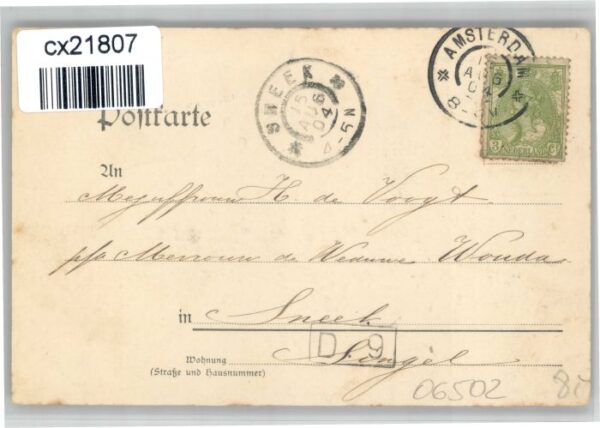 cx21807
Postkarte
SNEEK
15 AUG 04
4-5N
AMSTERDAM
15 AUG 04
3 NEDERLAND ct
An
Mejuffrouw H. de Voogt
p/a Mevrouw de Weduwe Wouda
in Sneek
D 9
Singel
Wohnung
(Straße und Hausnummer)
06502